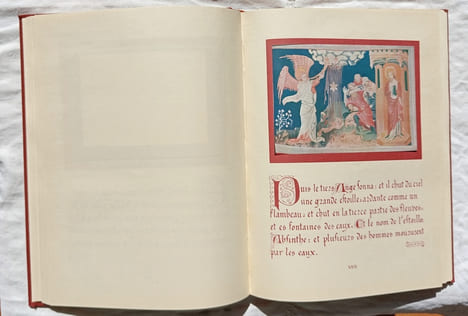 Puis le tiers Ange sonna: et il chut du ciel
une grande estoille ardante comme un
flambeau: et chut en la tierce partie des fleuves,
et es fontaines des eaux. Et le nom de l'estoille
Absinthe: et plusieurs des hommes moururent
par les eaux.